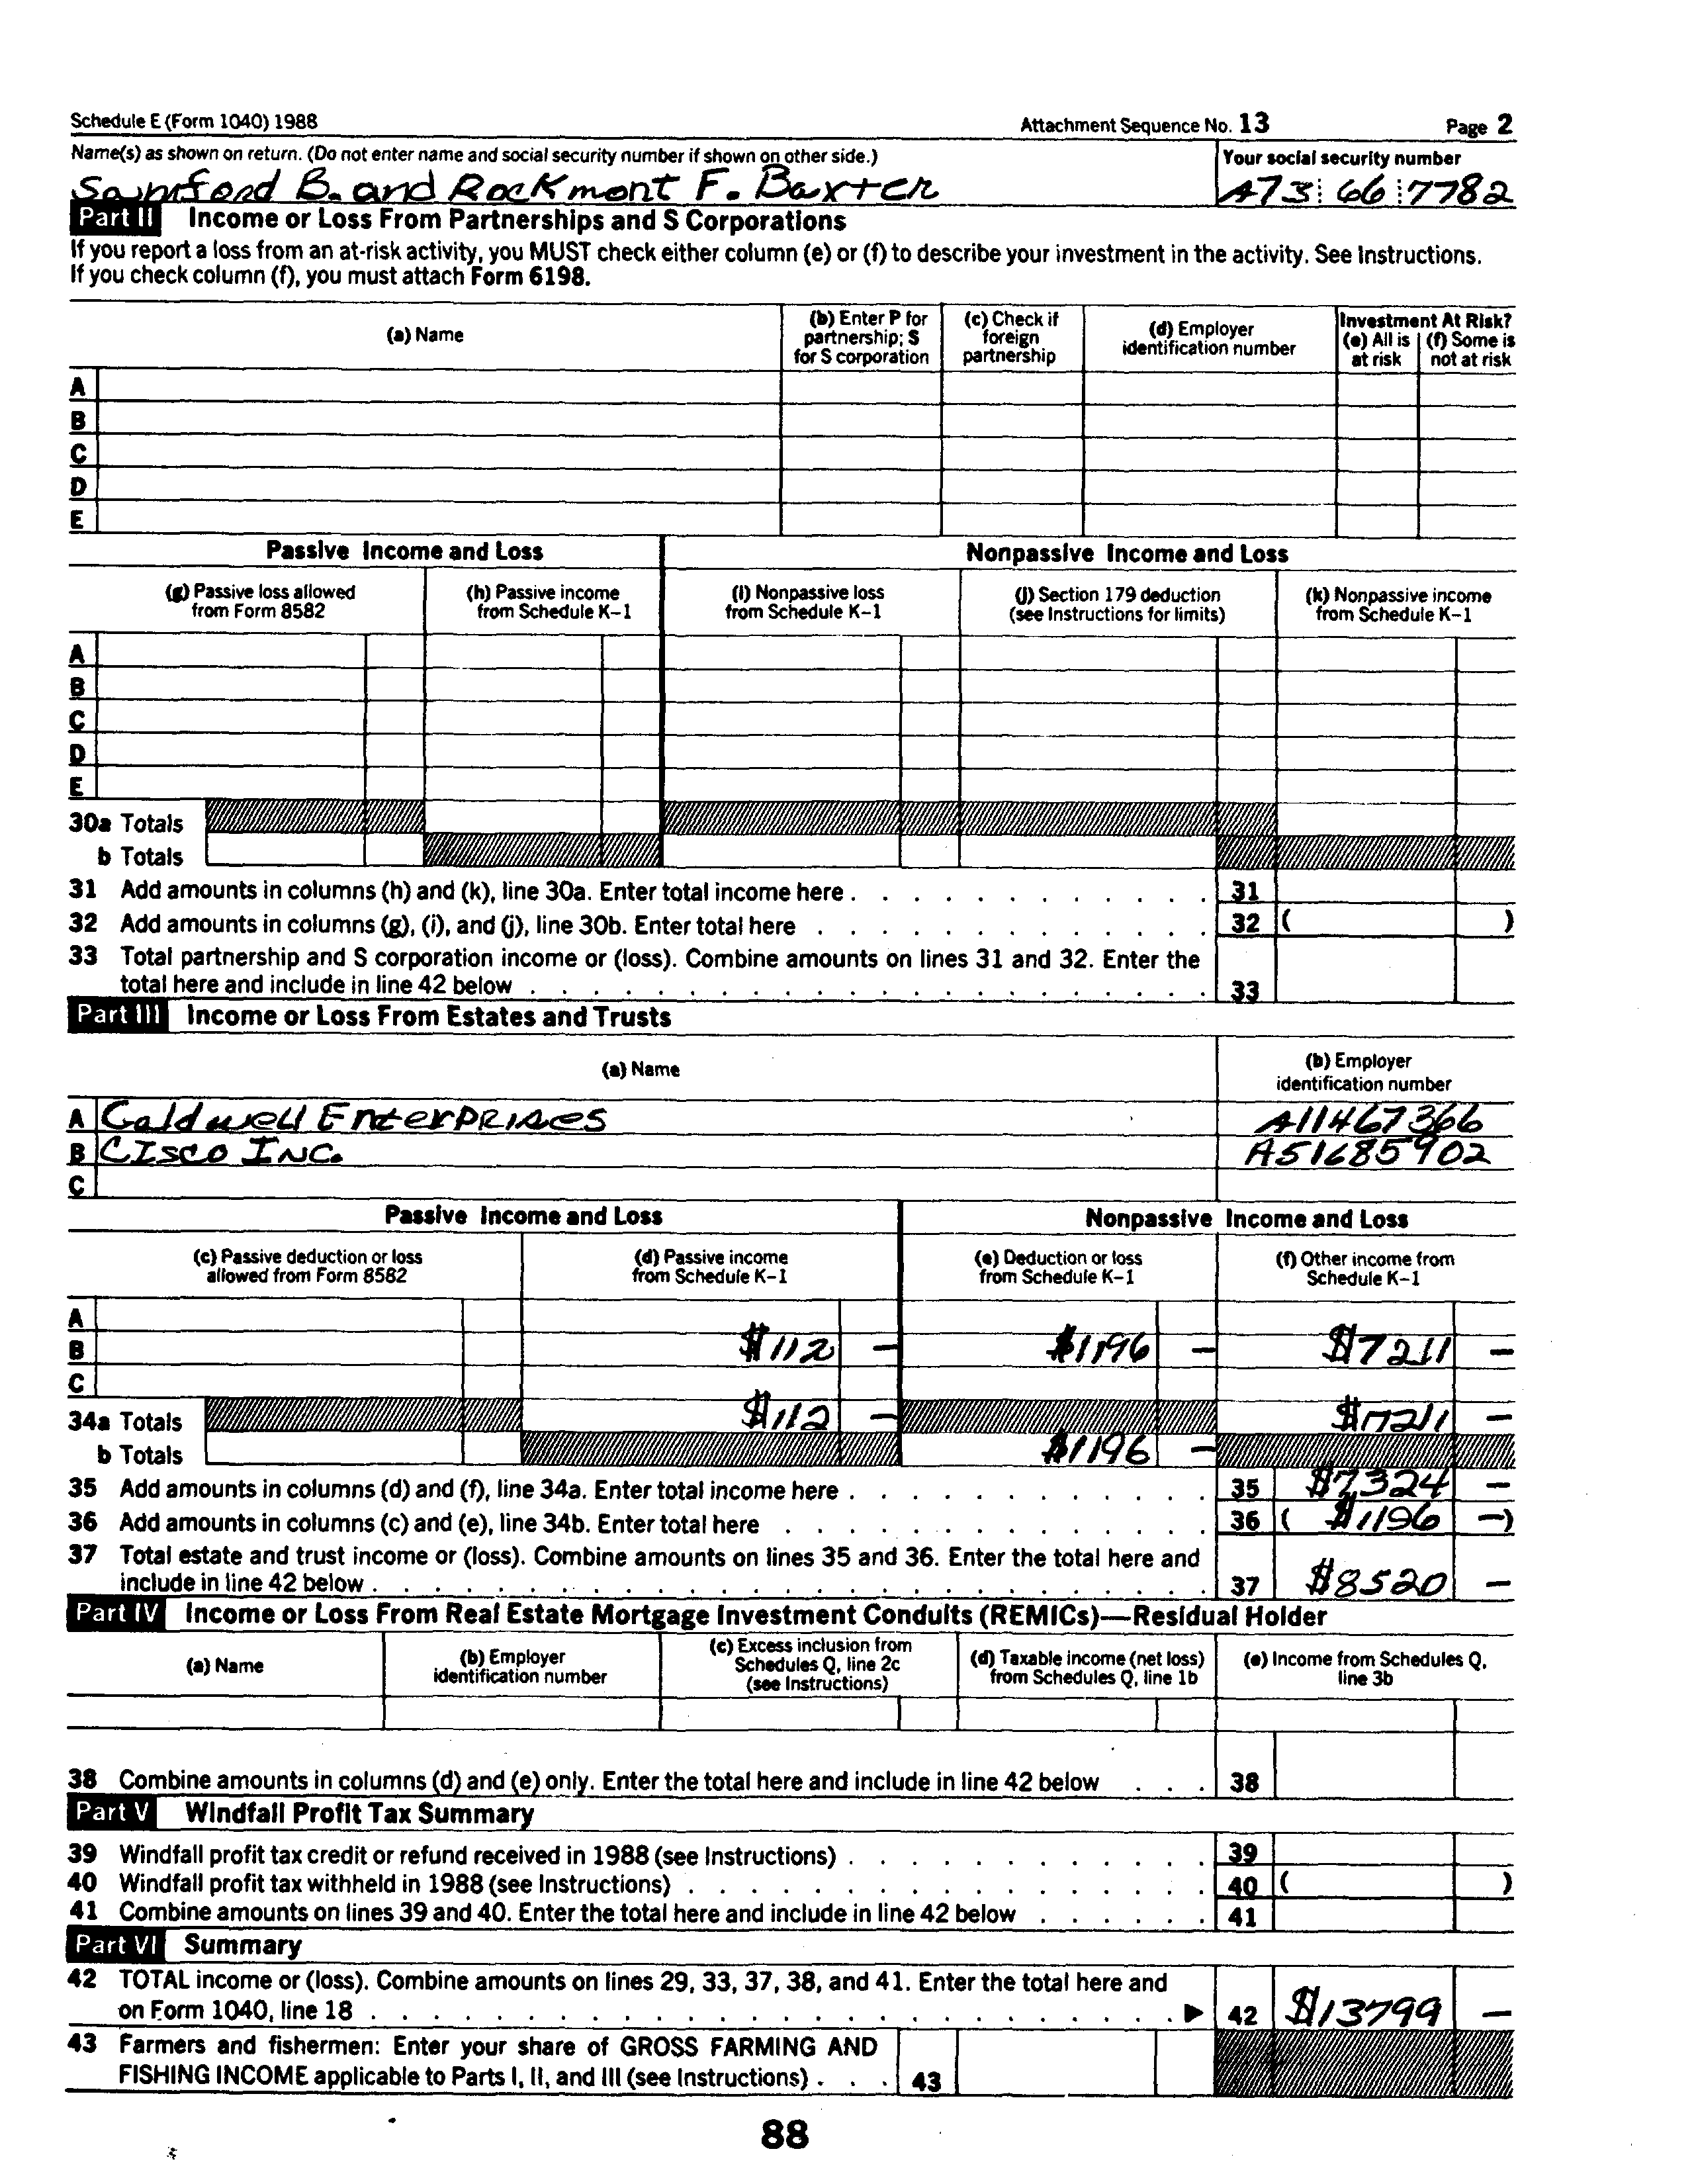 Schedule E (Form 1040) 1988 Attachment Sequence No. 13 Page 2
Name(s) as shown on return. (Do not enter name and social security number if shown on other side.) Your social security number
B. and Rockmont F. Baxter A73 66 7782
Part II Income or Loss From Partnerships and S Corporations
If you report a loss from an at-risk activity, you MUST check either column (e) or (f) to describe your investment in the activity. See Instructions.
If you check column (f), you must attach Form 6198.
(a) Name
(b) Enter P for partnership; S for S corporation
(c) Check if foreign partnership
(d) Employer identification number
Investment At Risk?
(e) All is at risk
(f) Some is not at risk
A
B
C
D
E
Passive Income and Loss Nonpassive Income and Loss
(g) Passive loss allowed from Form 8582
(h) Passive income from Schedule K–1
(i) Nonpassive loss from Schedule K–1
(j) Section 179 deduction (see Instructions for limits)
(k) Nonpassive income from Schedule K–1
A
B
C
D
E
30a Totals
b Totals
31 Add amounts in columns (h) and (k), line 30a. Enter total income here . . . 31
32 Add amounts in columns (g), (i), and (j), line 30b. Enter total here . . . 32 ( )
33 Total partnership and S corporation income or (loss). Combine amounts on lines 31 and 32. Enter the
total here and include in line 42 below . . . 33
Part III Income or Loss From Estates and Trusts
(a) Name
(b) Employer identification number
A Caldwell Enterprises A11467366
B Cisco Inc. A51685902
C
Passive Income and Loss Nonpassive Income and Loss
(c) Passive deduction or loss allowed from Form 8582
(d) Passive income from Schedule K–1
(e) Deduction or loss from Schedule K–1
(f) Other income from Schedule K–1
A
B $112 – $1196 – $7211 –
C
34a Totals $112 – $7211 –
b Totals $1196 –
35 Add amounts in columns (d) and (f), line 34a. Enter total income here . . . 35 $7,324 –
36 Add amounts in columns (c) and (e), line 34b. Enter total here . . . 36 ( $1196 –)
37 Total estate and trust income or (loss). Combine amounts on lines 35 and 36. Enter the total here and
include in line 42 below . . . 37 $8520 –
Part IV Income or Loss From Real Estate Mortgage Investment Conduits (REMICs)—Residual Holder
(a) Name
(b) Employer identification number
(c) Excess inclusion from Schedules Q, line 2c (see Instructions)
(d) Taxable income (net loss) from Schedules Q, line 1b
(e) Income from Schedules Q, line 3b
38 Combine amounts in columns (d) and (e) only. Enter the total here and include in line 42 below . . . 38
Part V Windfall Profit Tax Summary
39 Windfall profit tax credit or refund received in 1988 (see Instructions) . . . 39
40 Windfall profit tax withheld in 1988 (see Instructions) . . . 40 ( )
41 Combine amounts on lines 39 and 40. Enter the total here and include in line 42 below . . . 41
Part VI Summary
42 TOTAL income or (loss). Combine amounts on lines 29, 33, 37, 38, and 41. Enter the total here and
on Form 1040, line 18 . . . ▶ 42 $13799 –
43 Farmers and fishermen: Enter your share of GROSS FARMING AND
FISHING INCOME applicable to Parts I, II, and III (see Instructions) . . . 43
88